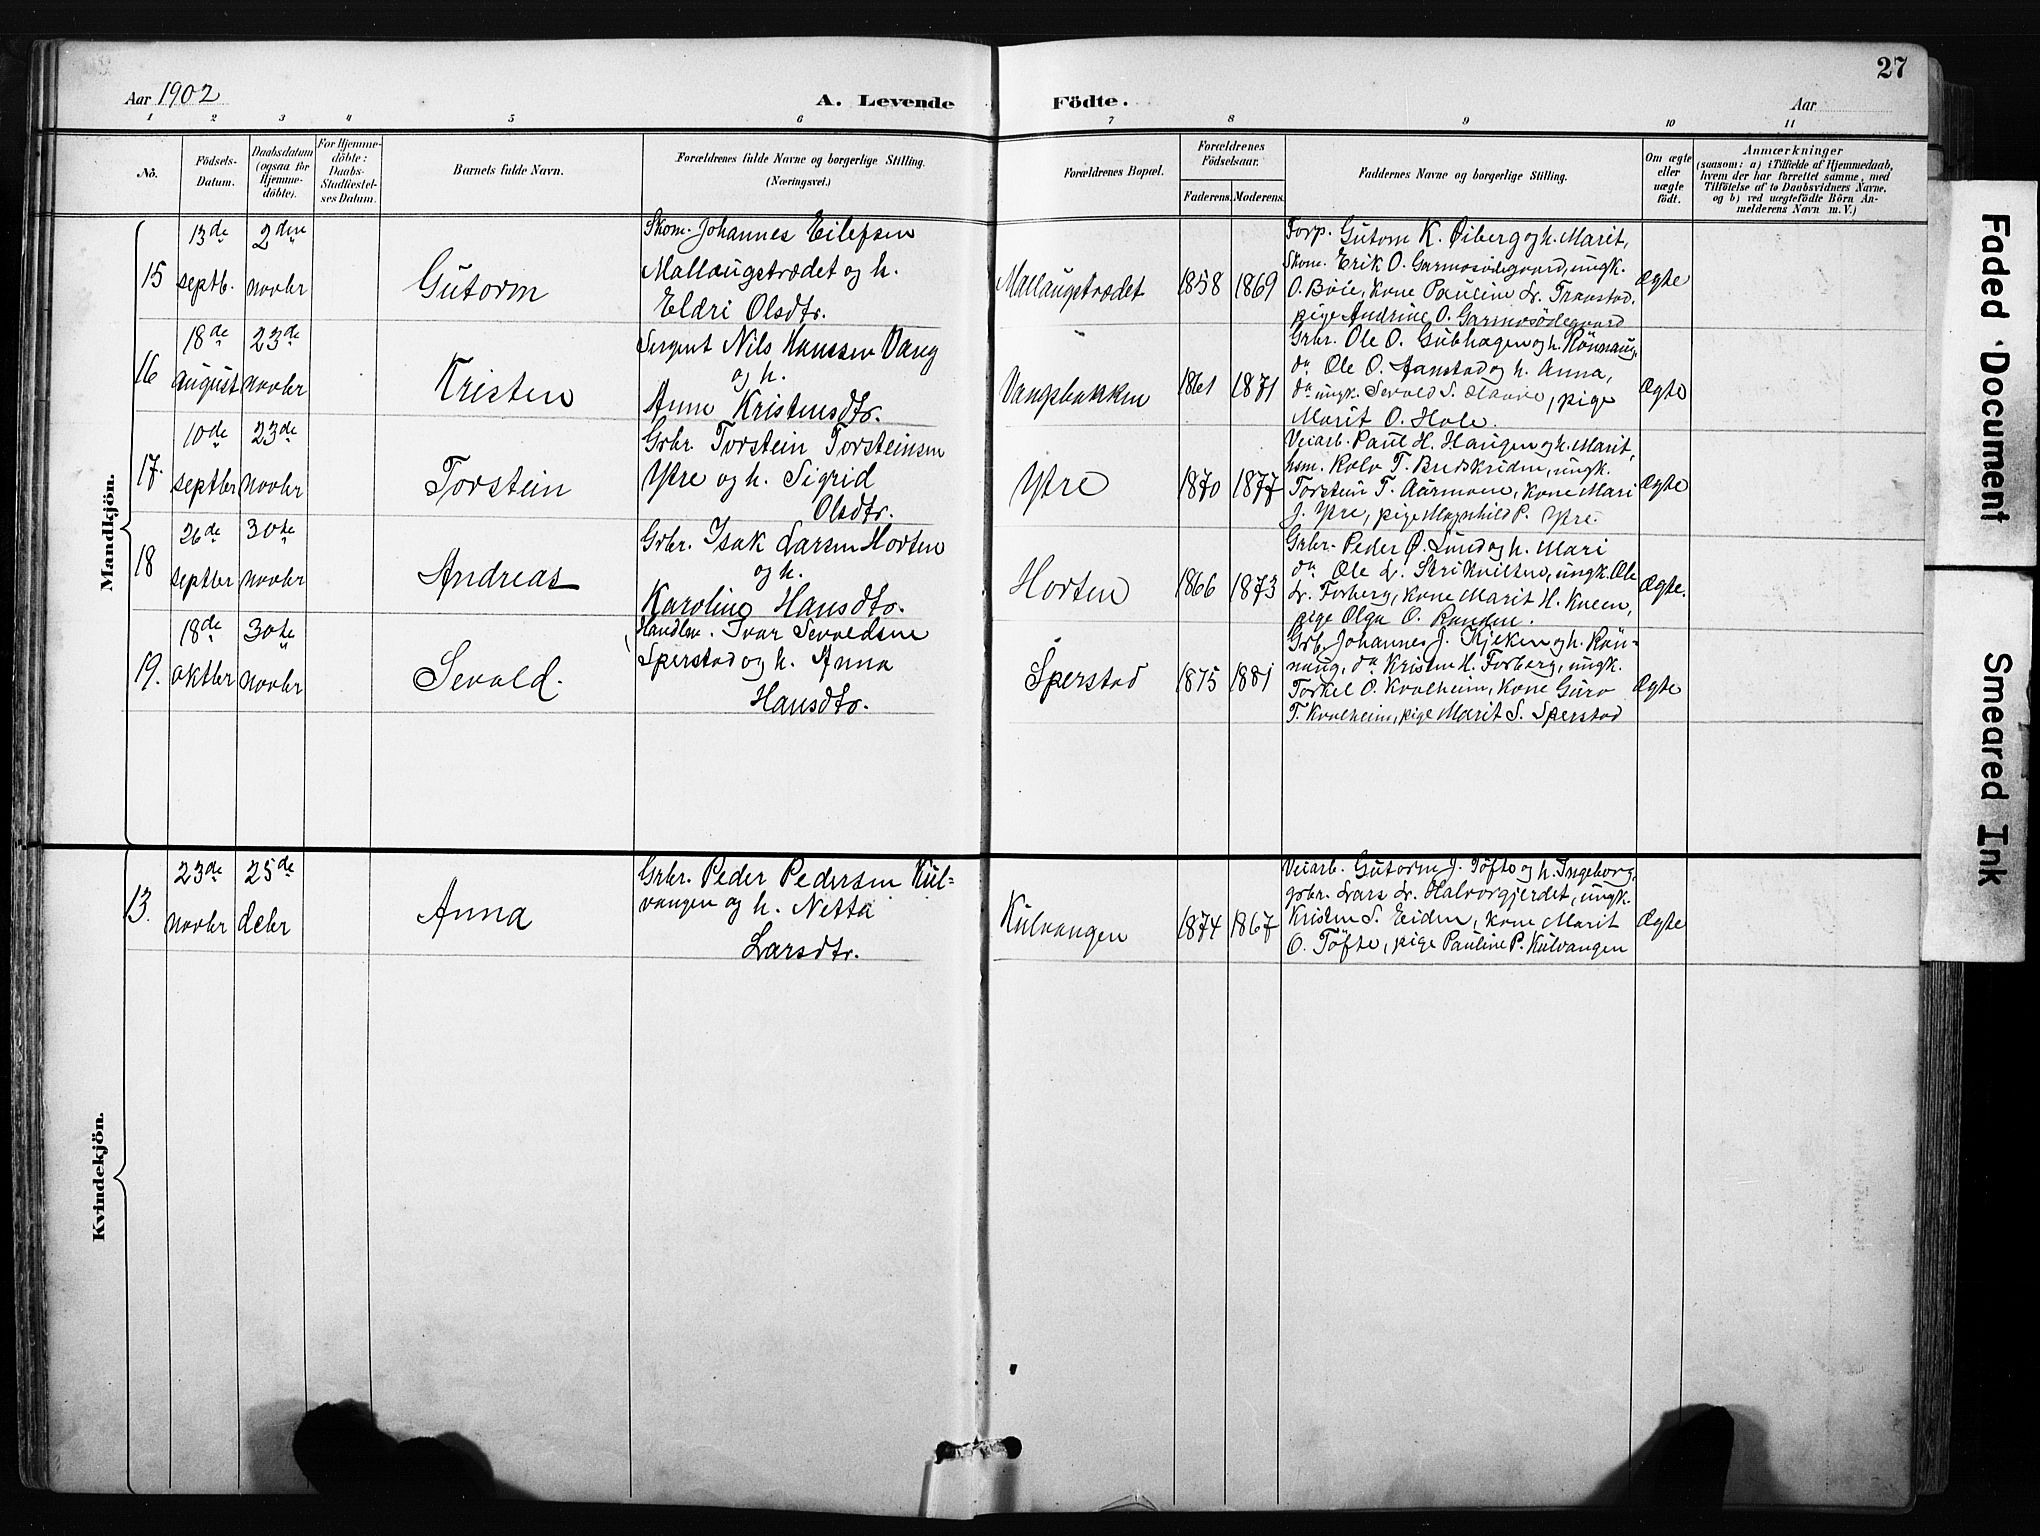 27
Aar 1902
A. Levende Födte.
Aar
1 2 3 4 5 6 7 8 9 10 11
No.
Födsels-
Datum.
Daabsdatum
(ogsaa for
Hjemme-
döbte).
For Hjemme-
döbte:
Daabs-
Stadfæstel-
ses Datum.
Barnets fulde Navn.
Forældrenes fulde Navne og borgerlige Stilling.
(Næringsvei.)
Forældrenes Bopæl.
Forældrenes
Födselsaar.
Faderens. Moderens.
Faddernes Navne og borgerlige Stilling.
Om ægte
eller
uægte
födt.
Anmærkninger
(saasom: a) i Tilfælde af Hjemmedaab,
hvem der har forrettet samme, med
Tilföielse af to Daabsvidners Navne,
og b) ved uægtefödte Börn An-
melderens Navn m. V.)
Mandkjön.
15
13de
septb.
2den
novbr
Gutorm
Skom. Johannes Eilefsen
Mallaugstrædet og h.
Eldri Olsdtr.
Mallaugstrædet
1858 1869
Forp. Gutorm K. Øiberg og h. Marit,
Skom. Erik O. Garmosödegaard, ungk.
O. Böie, kone Pauline L. Traastad,
pige Andrine O. Garmosödegaard
Ægte
16
18de
august
23de
novbr
Kristen
Sergent Nils Hanssen Vang
og h.
Anne Kristensdtr.
Vangsbakken
1861 1871
Grbr. Ole O. Gubhagen og h. Rönnaug,
do Ole O. Aanstad og h. Anna,
do ungk. Sevald S. , pige
Marit O. Hole.
Ægte
17.
10de
septbr
23de
novbr
Torstein
Grbr. Torstein Torsteinsen
Ytre og h. Sigrid
Olsdtr.
Ytre
1870 1877
Veiarb. Paul H. Haugen og h. Marit,
hsm. Kolv T. Bredskriden, ungk.
Torstein T. Aarmoen, kone Mari
J. Ytre, pige Magnhild P. Ytre.
Ægte
18
26de
septbr
30te
novbr
Andreas
Grbr. Isak Larsen Horten
og h.
Karoline Hansdtr.
Horten
1866 1873
Grbr. Peder Ø. Lund og h. Mari
do Ole L. , ungk. Ole
L. Forberg, kone Marit H. Kneen,
pige Olga O. Randen.
Ægte.
19.
18de
oktbr
30te
novbr
Sevald.
Handlsm. Ivar Sevaldsen
Sperstad og h. Anna
Hansdtr.
Sperstad
1875 1881
Grb. Johannes J. Kjæken og h. Rön-
naug, do Kristen H. Forberg, ungk.
Torkel O. Kvalheim, kone Guro
T. Kvalheim, pige Marit S. Sperstad
Ægte
Kvindekjön.
13.
23de
novbr
25de
debr
Anna
Grbr. Peder Pedersen Kul-
vangen og h. Netta
Larsdtr.
Kulvangen
1874 1867
Veiarb. Gutorm J. Töfte og h. Ingeborg,
grbr. Lars L. Halvorgjerdet, ungk.
Kristen S. Eiden, kone Marit
O. Töfte, pige Pauline P. Kulvangen
Ægte
Faded Document
Smeared Ink